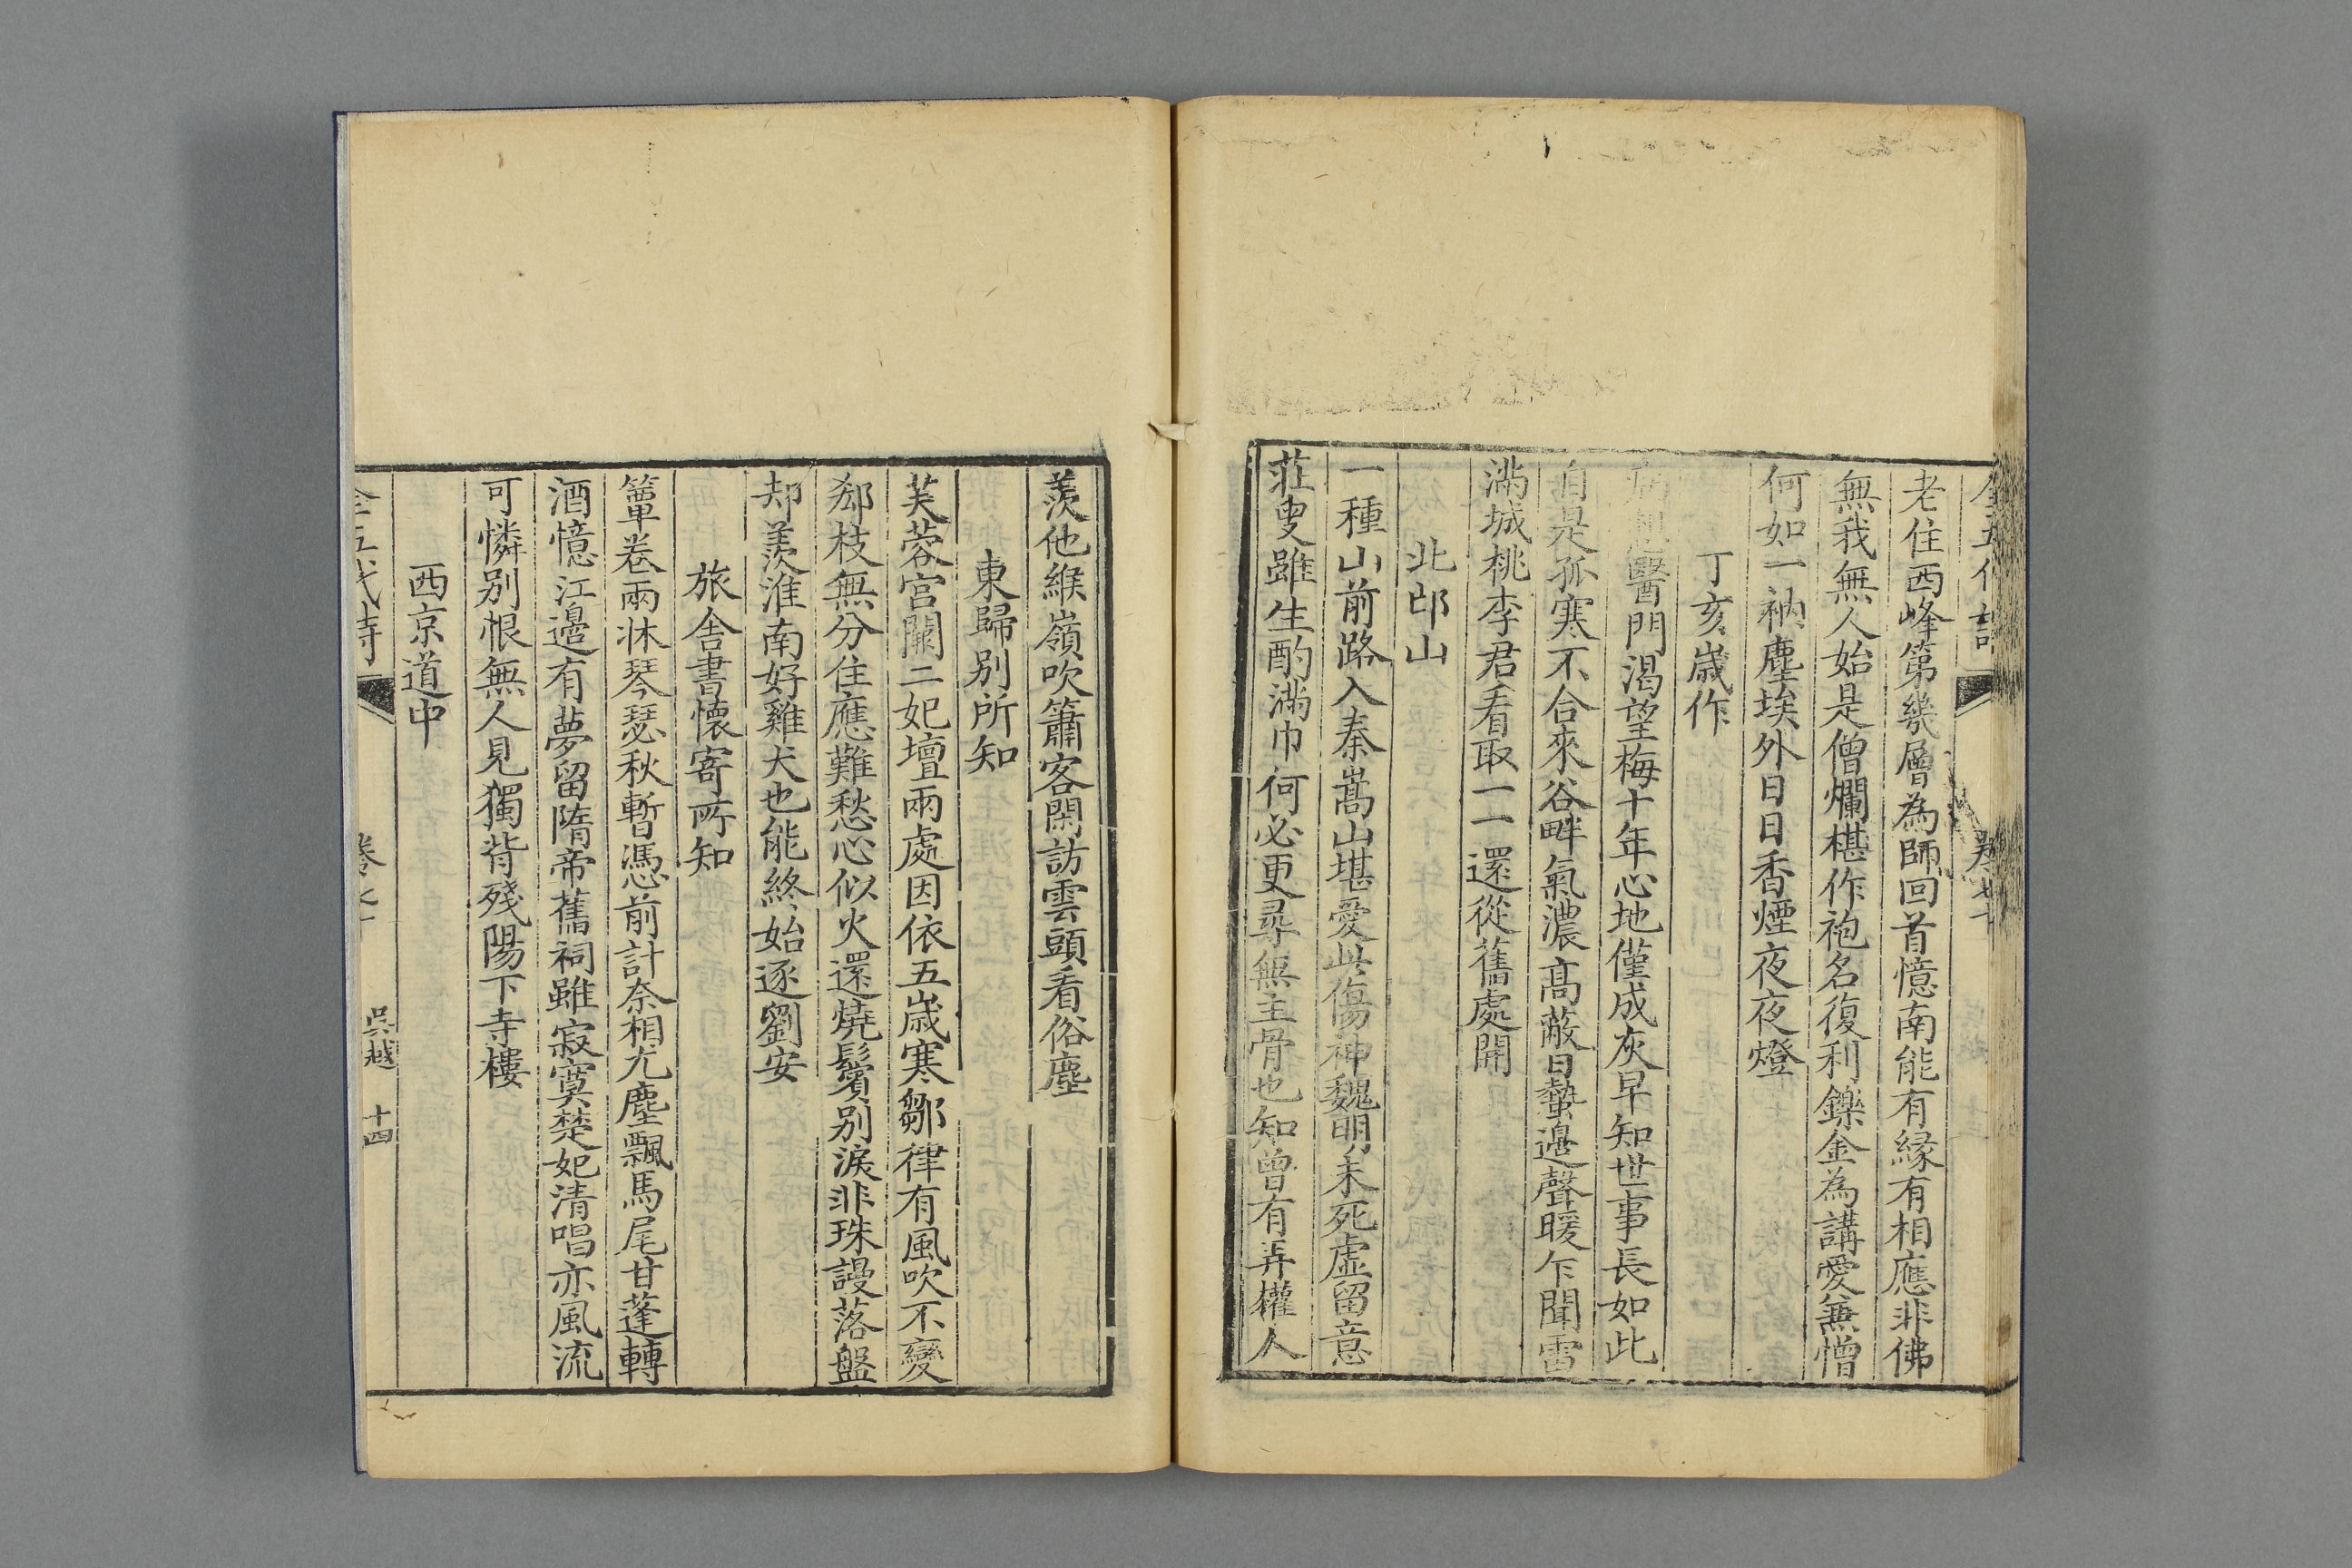 老住西峰第幾層為師回首憶南能有緣有相應非佛
無我無人始是僧爛椹作袍名復利鑠金為講愛無憎
何如一衲塵埃外日日香煙夜夜燈
丁亥歲作
病想醫門渴望梅十年心地僅成灰早知世事長如此
自是孤寒不合來谷畔氣濃高蔽日蟄邊聲暖乍聞雷
滿城桃李君看取一一還從舊處開
北邙山
一種山前路入秦嵩山堪愛此傷神魏明未死虛留意
莊叟雖生酌滿巾何必更尋無主骨也知曾有弄權人
羨他緱嶺吹簫客閑訪雲頭看俗塵
東歸別所知
芙蓉宮闕二妃壇兩處因依五歲寒鄒律有風吹不變
郄枝無分住應難愁心似火還燒鬢別淚非珠謾落盤
却羨淮南好雞犬也能終始逐劉安
旅舍書懷寄所知
簟卷兩牀琴瑟秋暫憑前計奈相尤塵飄馬尾甘蓬轉
酒憶江邊有夢留隋帝舊祠雖寂寞楚妃清唱亦風流
可憐別恨無人見獨背殘陽下寺樓
西京道中
全五代詩
吳越
十四